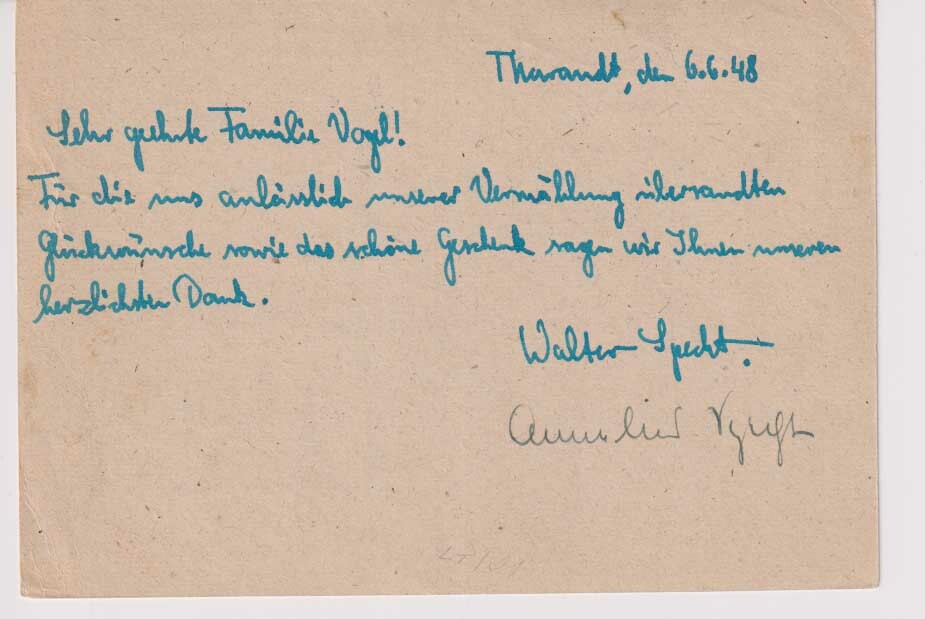 Tharandt, den 6.6.48
Sehr geehrte Familie Vogel!
Für die uns anlässlich unserer Vermählung übersandten
Glückwünsche sowie das schöne Geschenk sagen wir Ihnen unseren
herzlichsten Dank.
Walter Specht.
Annelies Specht